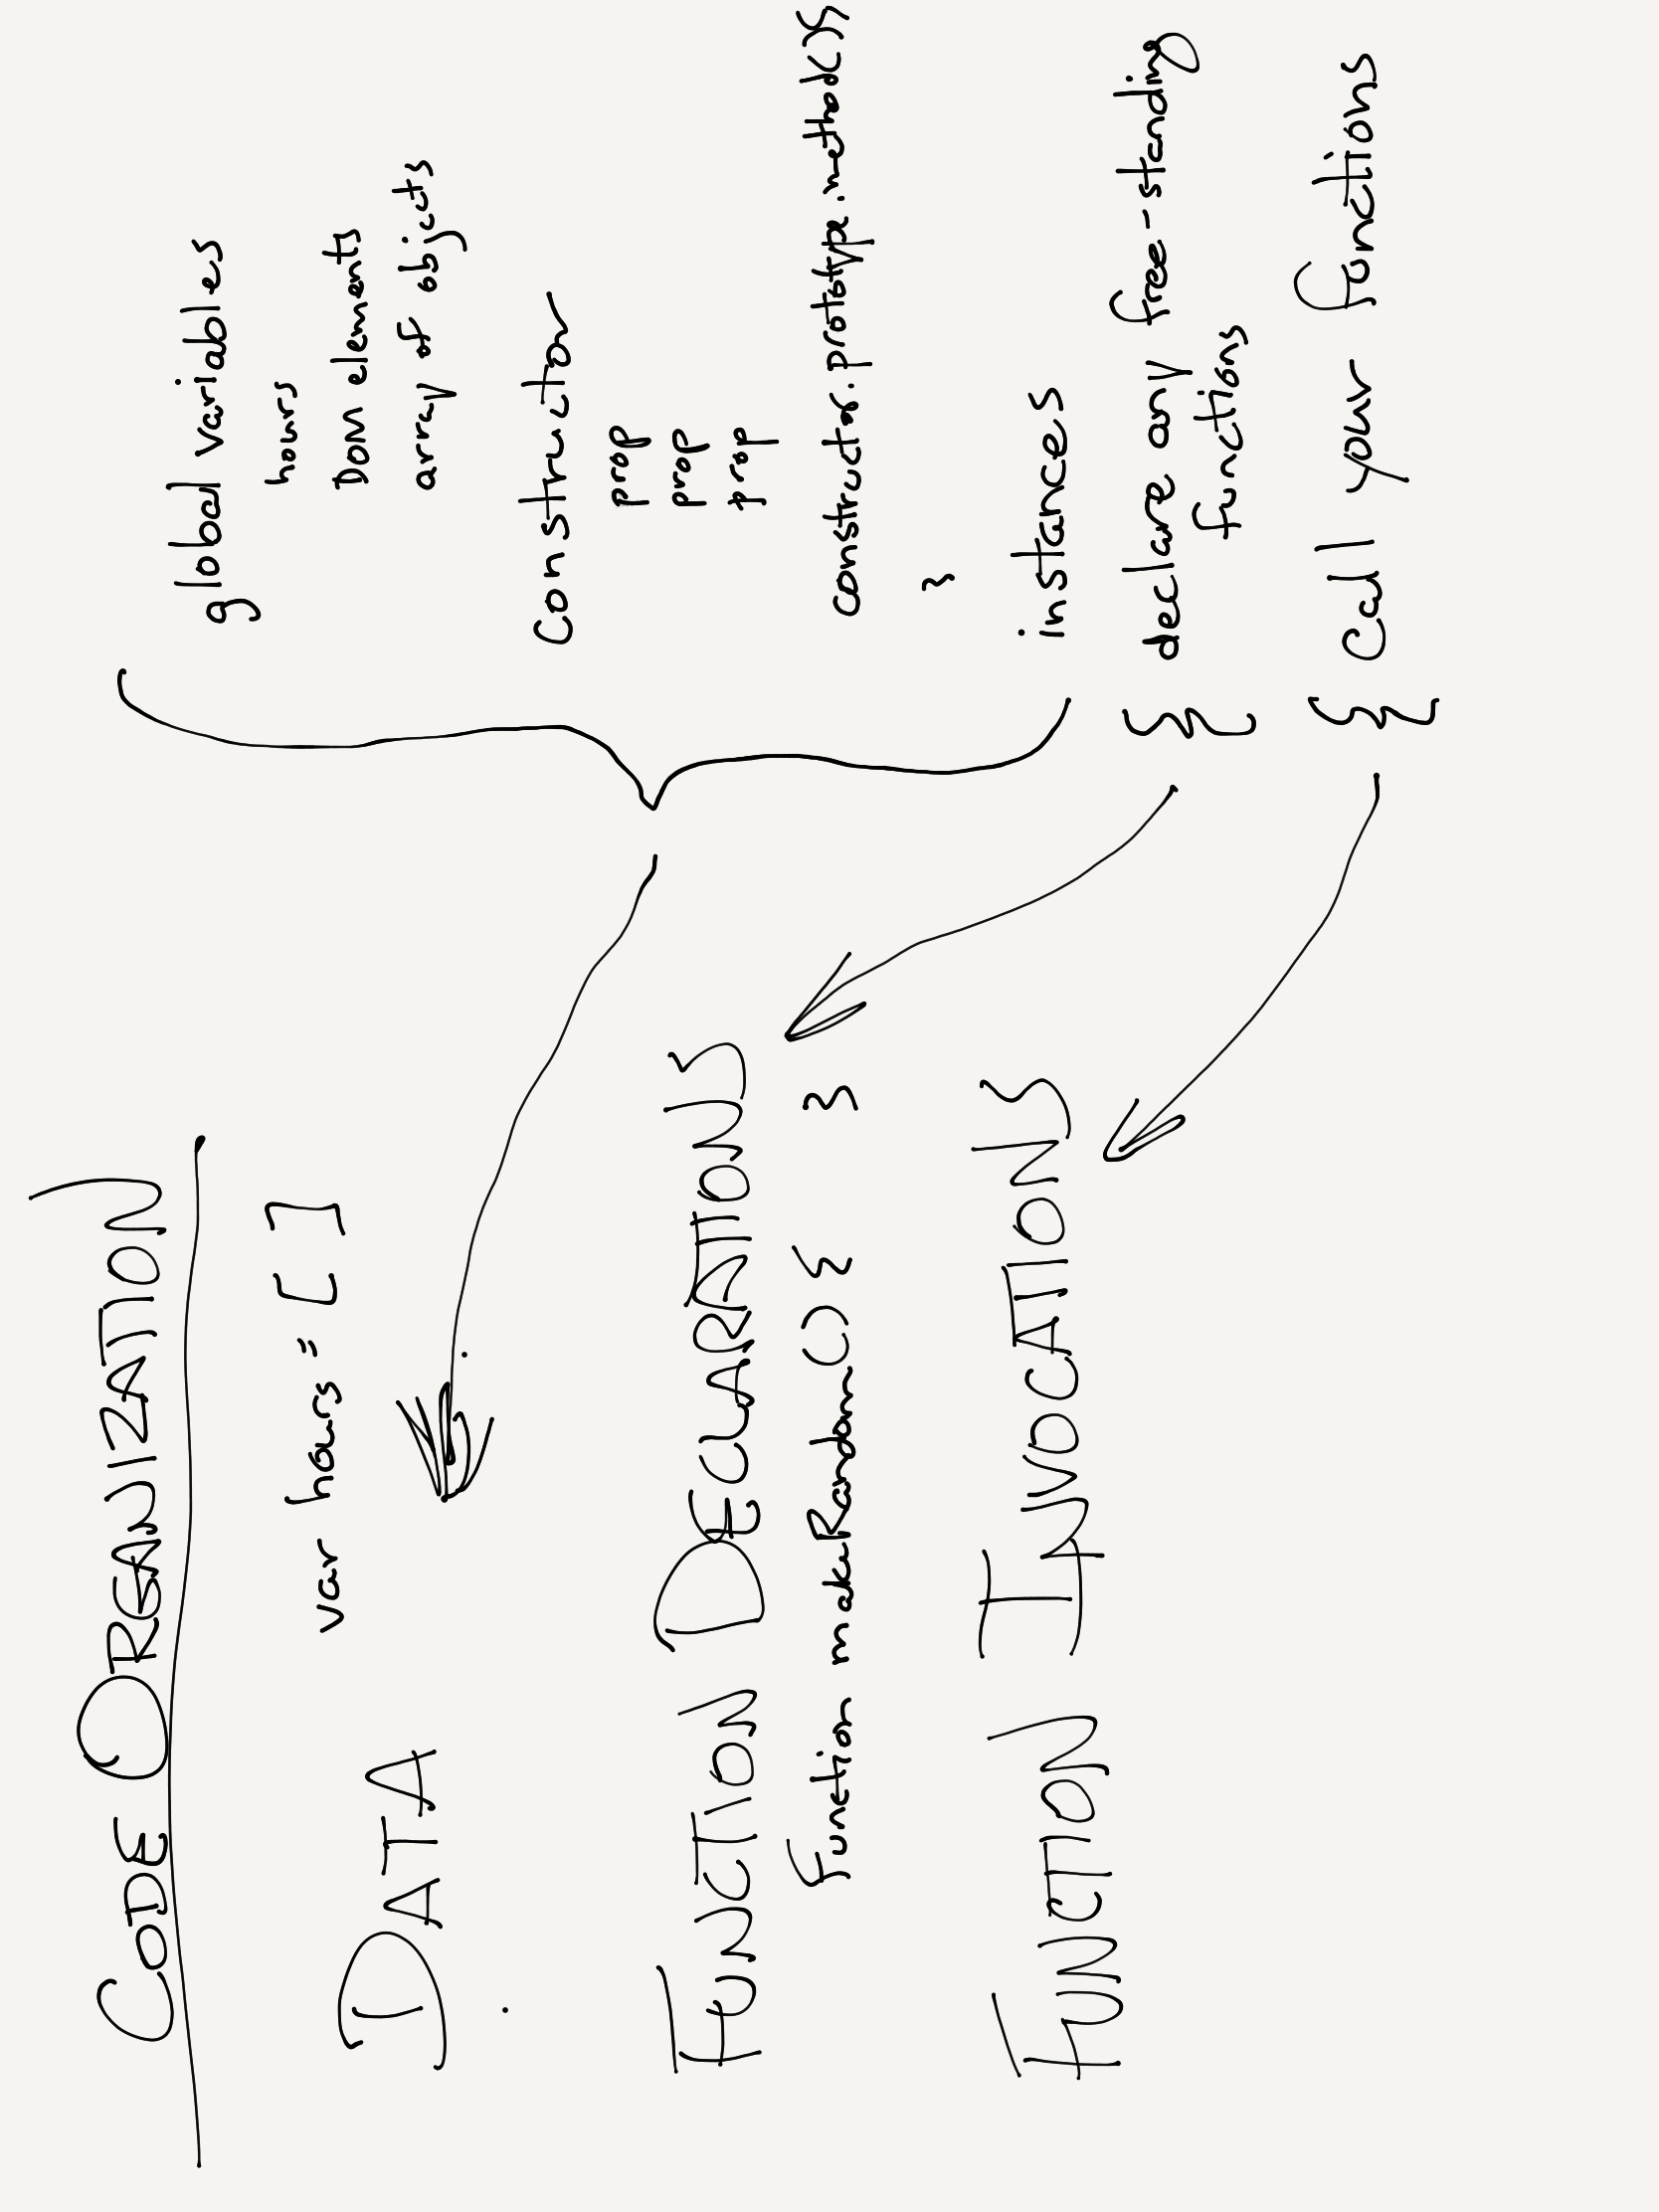 CODE ORGANIZATION
var hours = [ ]
DATA
FUNCTION DECLARATIONS
function makeRandom() { }
FUNCTION INVOCATIONS
global variables
hours
DOM elements
array of objects
Constructor
prop
prop
prop
constructor.prototype.method(){
}
instances
declare any free-standing
functions
Call your functions